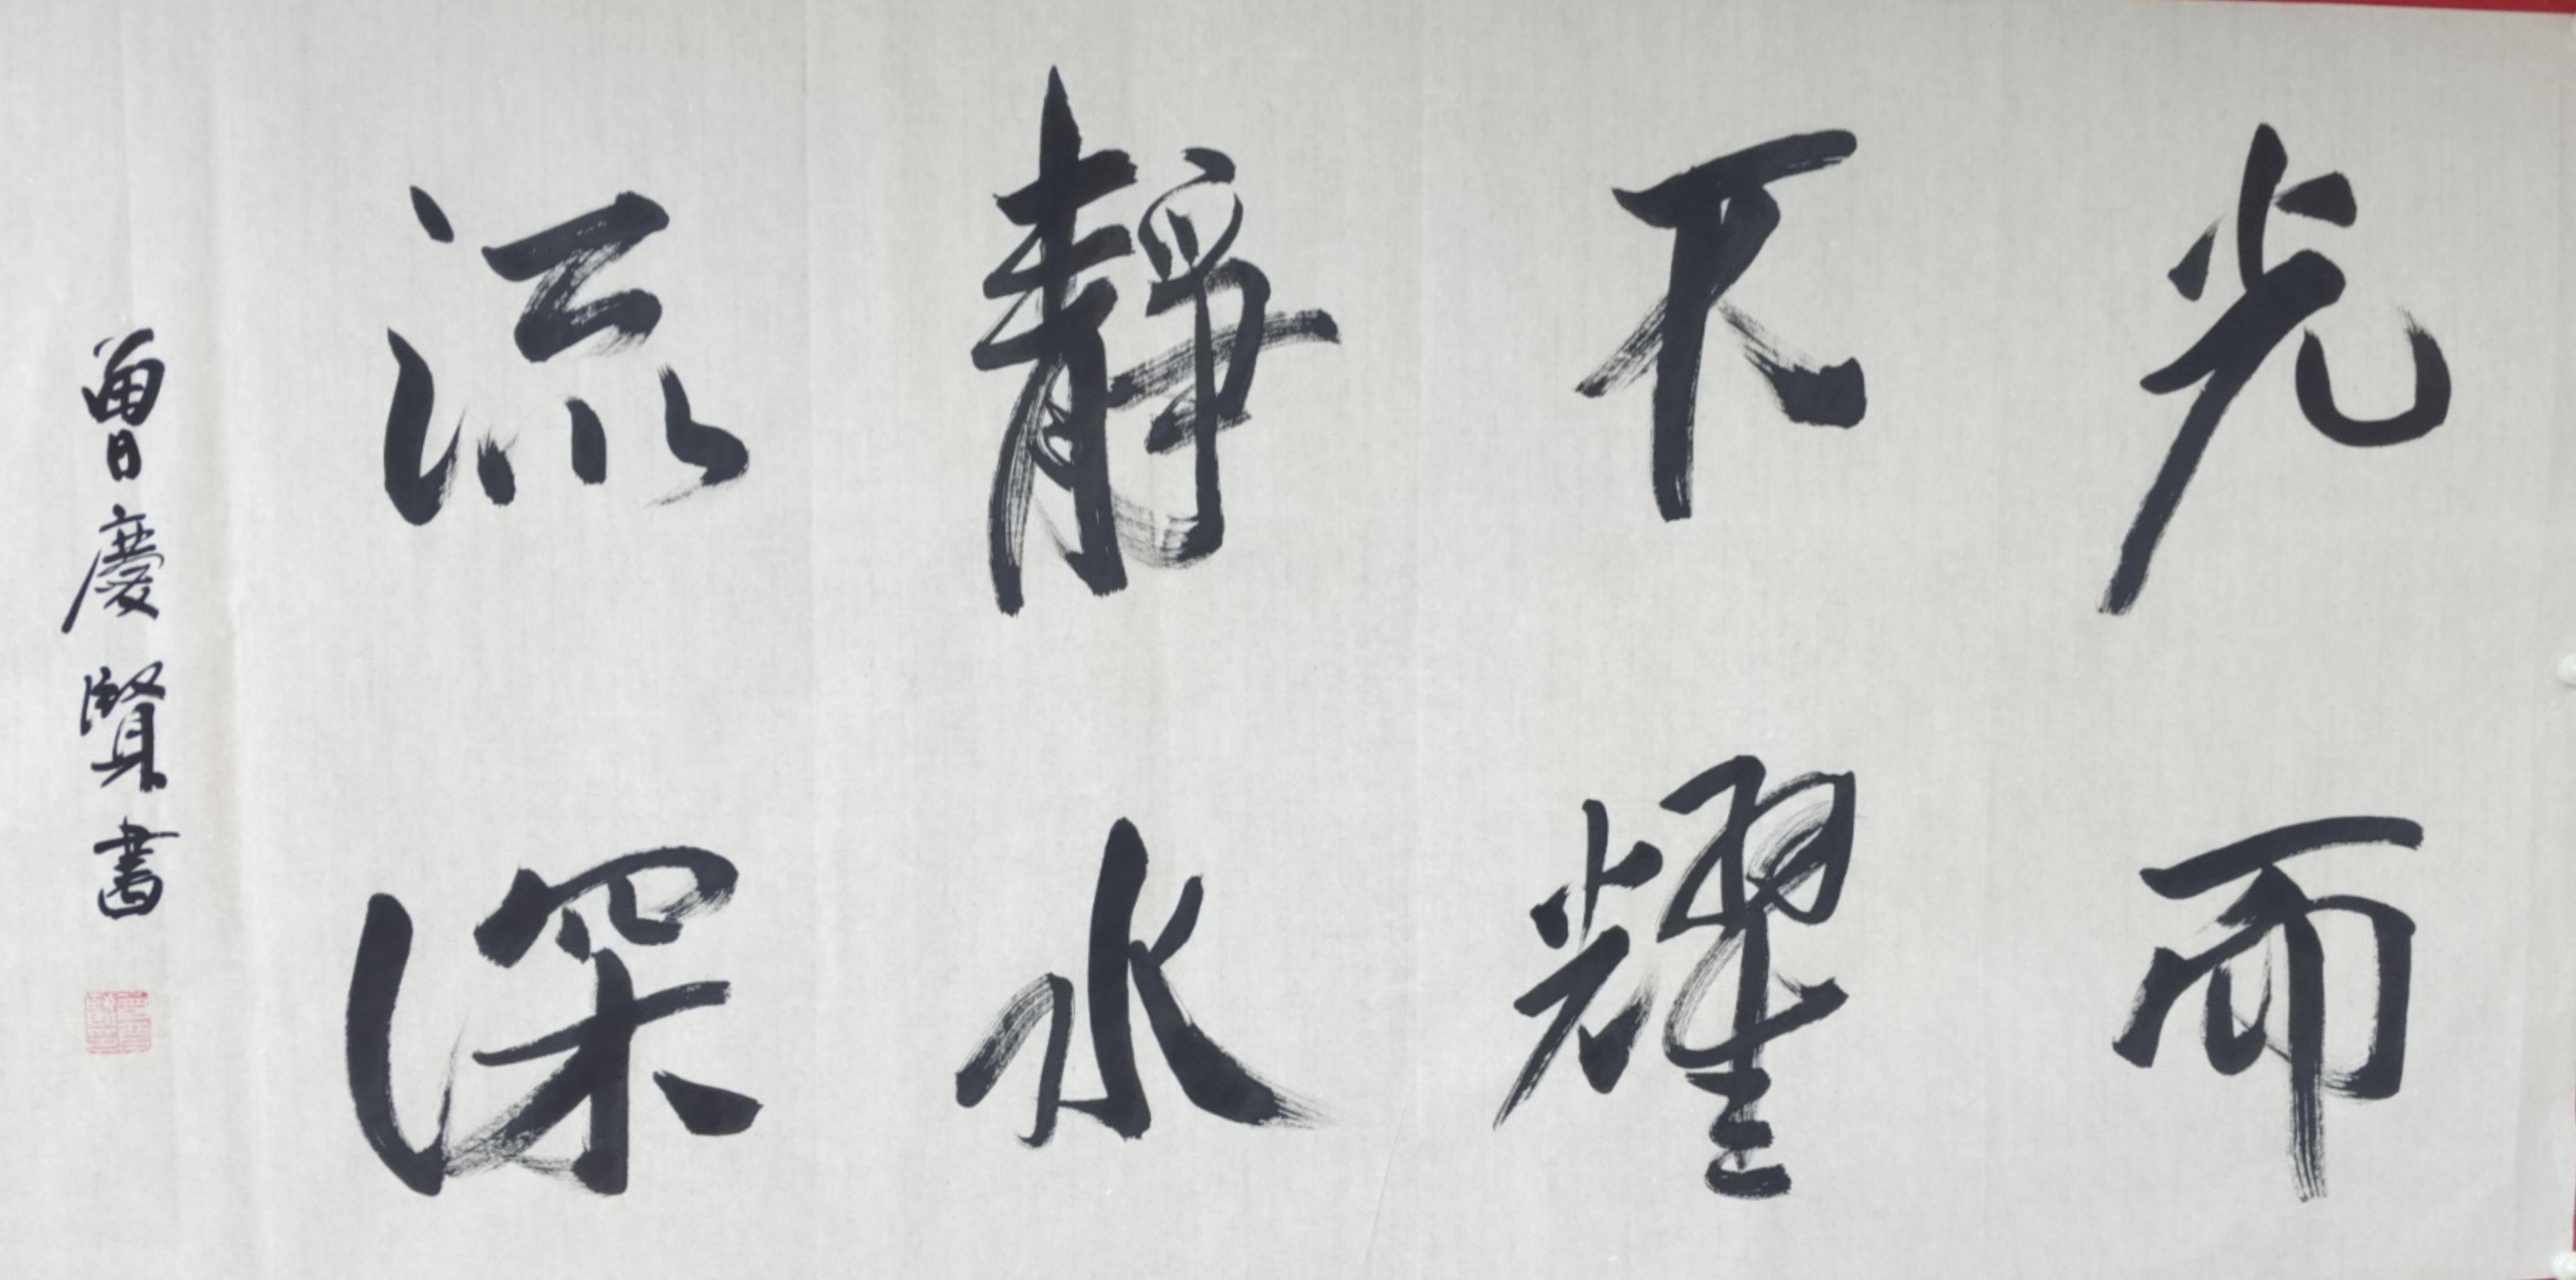 光而
不耀
靜水
流深
曾慶賢書